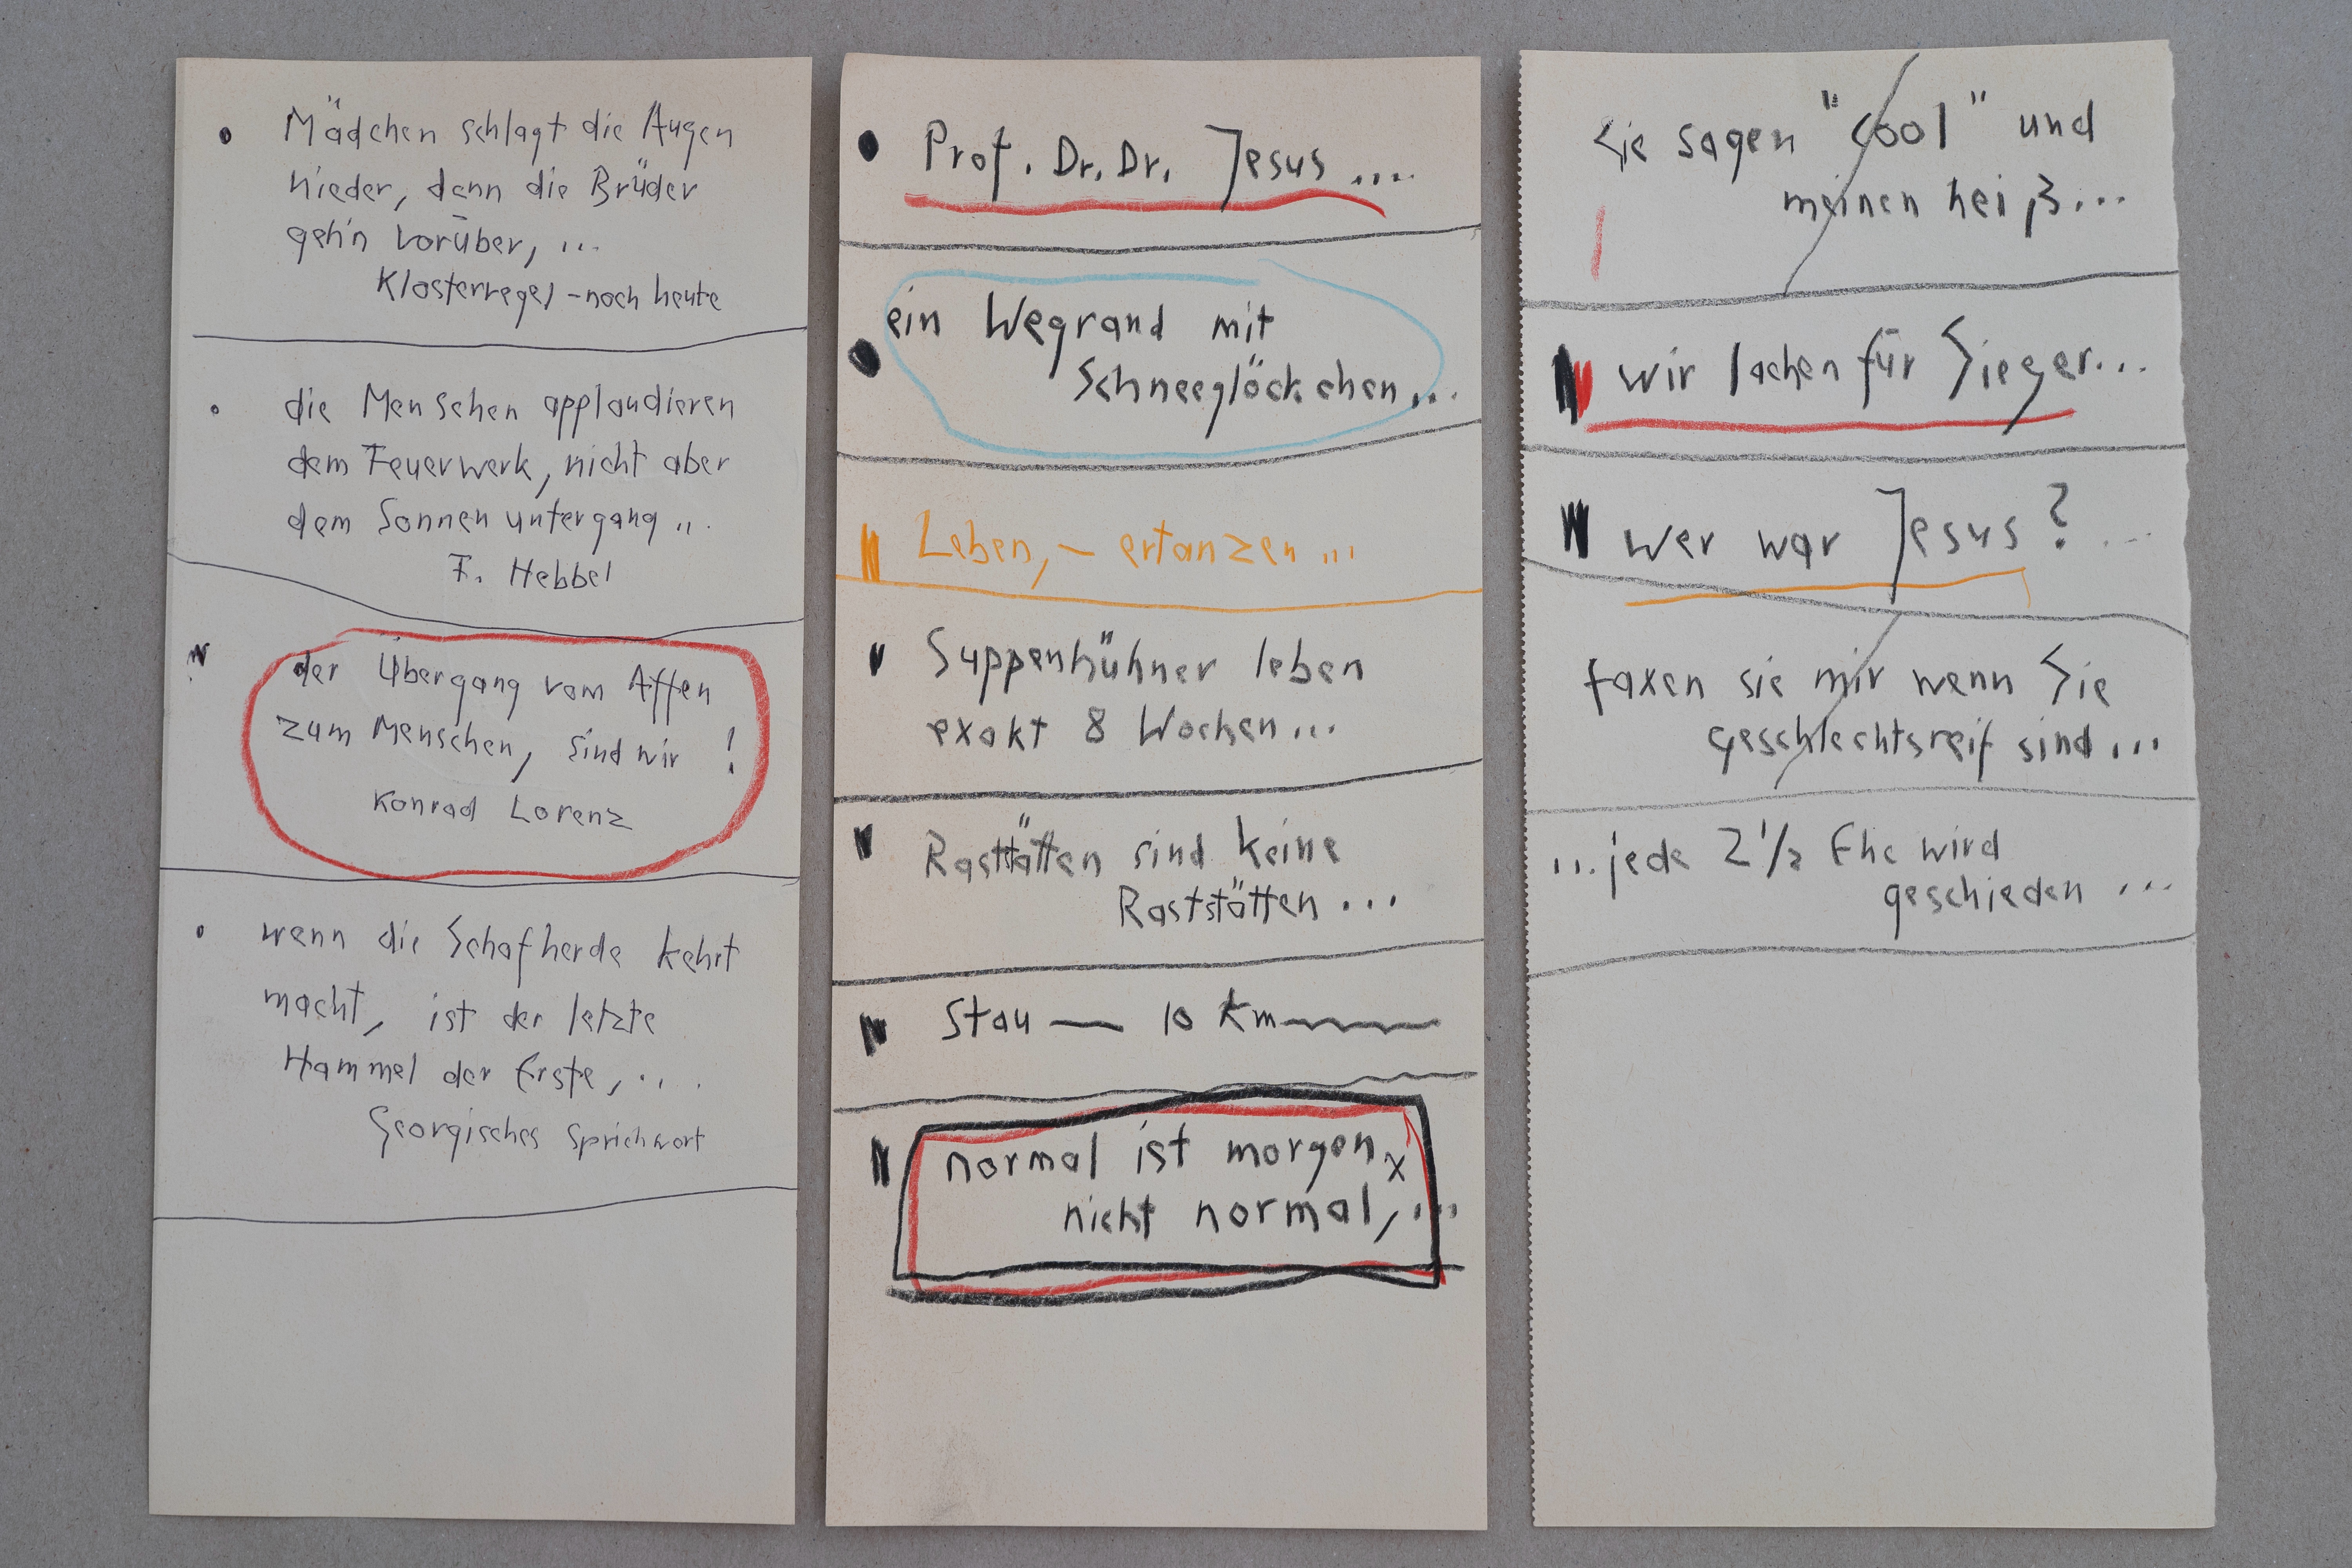 Mädchen schlagt die Augen
nieder, denn die Brüder
geh'n vorüber, ...
Klosterregel - noch heute
die Menschen applaudieren
dem Feuerwerk, nicht aber
dem Sonnenuntergang ...
F. Hebbel
der Übergang vom Affen
zum Menschen, sind wir !
Konrad Lorenz
wenn die Schafherde kehrt
macht, ist der letzte
Hammel der Erste, ...
Georgisches Sprichwort
Prof. Dr. Dr. Jesus ....
ein Wegrand mit
Schneeglöckchen...
Leben, - ertanzen ...
Suppenhühner leben
exakt 8 Wochen...
Rasttätten sind keine
Raststätten ...
Stau — 10 km
normal ist morgen x
nicht normal, ...
Sie sagen "cool" und
meinen heiß...
wir lachen für Sieger...
wer war Jesus? ...
faxen sie mir wenn Sie
geschlechtsreif sind...
...jede 2 1/2 Ehe wird
geschieden ...